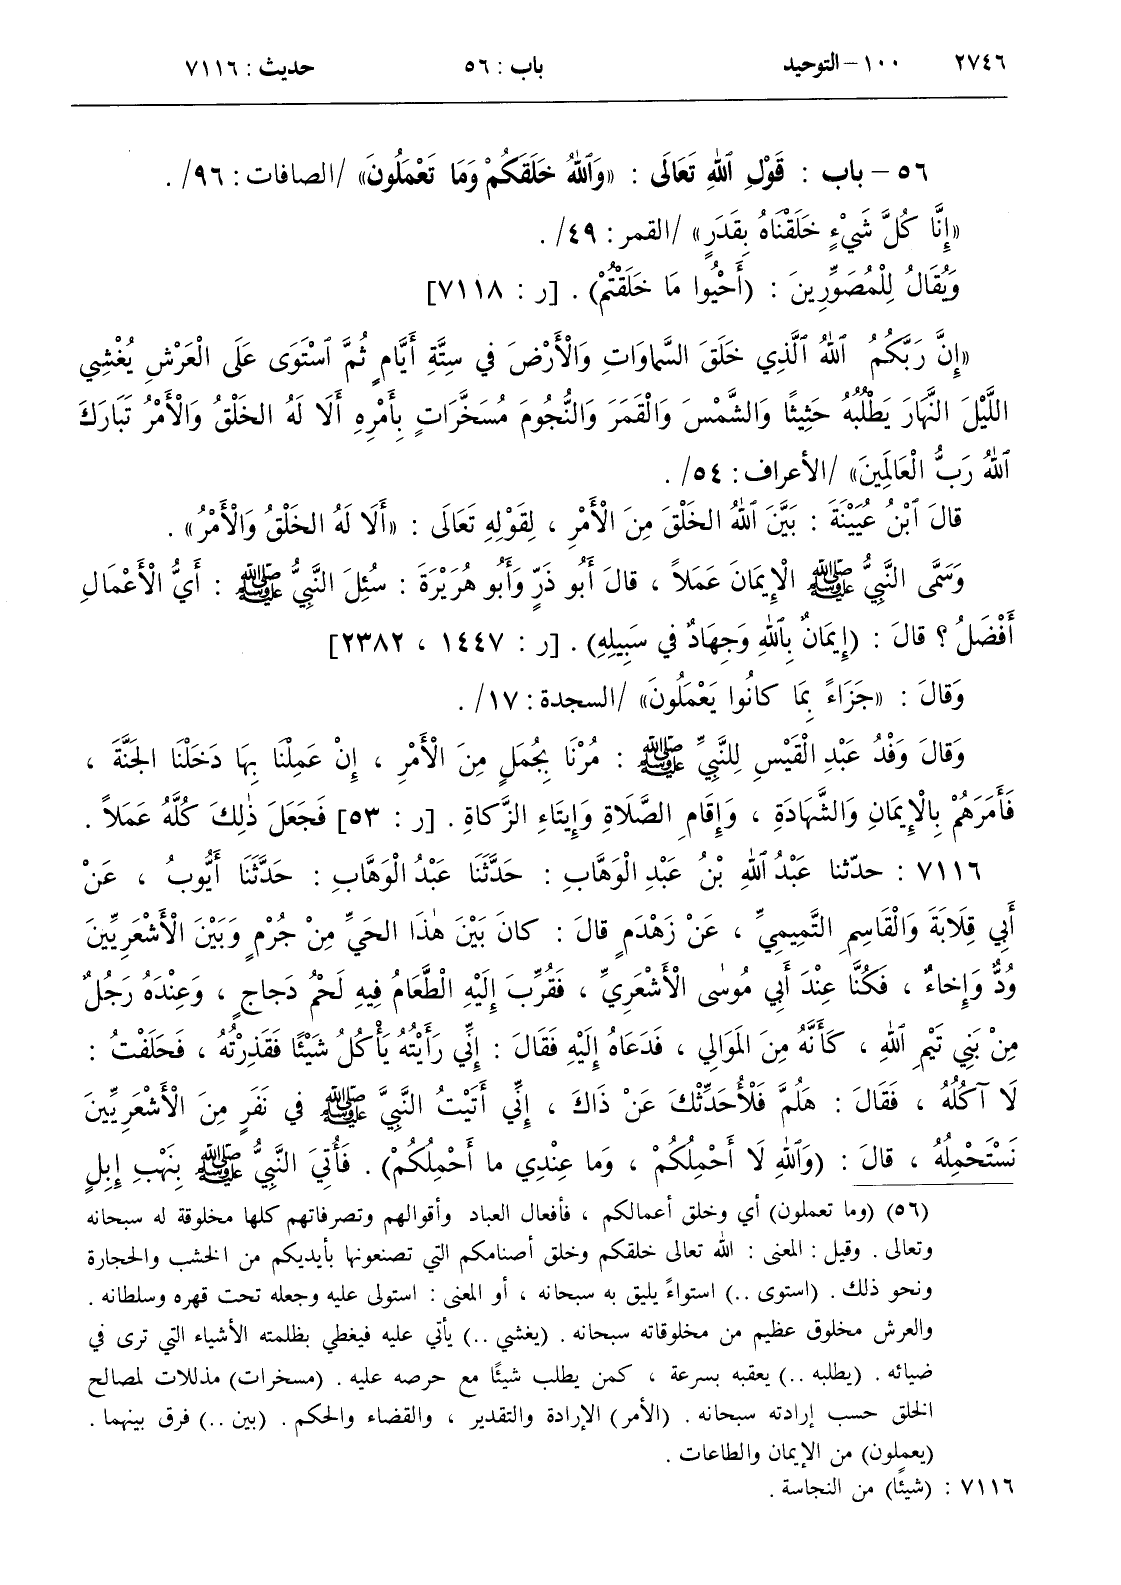 ٢٧٤٦ ١٠٠ – التوحيد باب : ٥٦ حديث : ٧١١٦
٥٦ – باب : قَوْلِ ٱللهِ تَعَالَى : «وَٱللهُ خَلَقَكُمْ وَمَا تَعْمَلُونَ» /الصافات : ٩٦/ .
«إِنَّا كُلَّ شَيْءٍ خَلَقْنَاهُ بِقَدَرٍ» /القمر : ٤٩/ .
وَيُقَالُ لِلْمُصَوِّرِينَ : (أَحْيُوا مَا خَلَقْتُمْ) . [ر : ٧١١٨]
«إِنَّ رَبَّكُمُ ٱللهُ ٱلَّذِي خَلَقَ السَّماوَاتِ وَالْأَرْضَ في سِتَّةِ أَيَّامٍ ثُمَّ ٱسْتَوَى عَلَى الْعَرْشِ يُغْشِي
اللَّيْلَ النَّهَارَ يَطْلُبُهُ حَثِيثًا وَالشَّمْسَ وَالْقَمَرَ وَالنُّجُومَ مُسَخَّرَاتٍ بِأَمْرِهِ أَلَا لَهُ الخَلْقُ وَالْأَمْرُ تَبَارَكَ
ٱللهُ رَبُّ الْعَالَمِينَ» /الأعراف : ٥٤/ .
قالَ ٱبْنُ عُيَيْنَةَ : بَيَّنَ ٱللهُ الخَلْقَ مِنَ الْأَمْرِ ، لِقَوْلِهِ تَعَالَى : «أَلَا لَهُ الخَلْقُ وَالْأَمْرُ» .
وَسَمَّى النَّبِيُّ ﷺ الْإِيمَانَ عَمَلاً ، قالَ أَبُو ذَرٍّ وَأَبُو هُرَيْرَةَ : سُئِلَ النَّبِيُّ ﷺ : أَيُّ الْأَعْمَالِ
أَفْضَلُ ؟ قالَ : (إِيمَانٌ بِٱللهِ وَجِهَادٌ في سَبِيلِهِ) . [ر : ١٤٤٧ ، ٢٣٨٢]
وَقالَ : «جَزَاءً بِمَا كانُوا يَعْمَلُونَ» /السجدة : ١٧/ .
وَقالَ وَفْدُ عَبْدِ الْقَيْسِ لِلنَّبِيِّ ﷺ : مُرْنَا بِجُمَلٍ مِنَ الْأَمْرِ ، إِنْ عَمِلْنَا بِهَا دَخَلْنَا الجَنَّةَ ،
فَأَمَرَهُمْ بِالْإِيمَانِ وَالشَّهَادَةِ ، وَإِقَامِ الصَّلَاةِ وَإِيتَاءِ الزَّكاةِ . [ر : ٥٣] فَجَعَلَ ذٰلِكَ كُلَّهُ عَمَلاً .
٧١١٦ : حدّثنا عَبْدُ ٱللهِ بْنُ عَبْدِ الْوَهَّابِ : حَدَّثَنَا عَبْدُ الْوَهَّابِ : حَدَّثَنَا أَيُّوبُ ، عَنْ
أَبِي قِلَابَةَ وَالْقَاسِمِ التَّمِيمِيِّ ، عَنْ زَهْدَمٍ قالَ : كانَ بَيْنَ هٰذَا الحَيِّ مِنْ جُرْمٍ وَبَيْنَ الْأَشْعَرِيِّينَ
وُدٌّ وَإِخاءٌ ، فَكُنَّا عِنْدَ أَبِي مُوسٰى الْأَشْعَرِيِّ ، فَقُرِّبَ إِلَيْهِ الْطَّعَامُ فِيهِ لَحْمُ دَجاجٍ ، وَعِنْدَهُ رَجُلٌ
مِنْ بَنِي تَيْمِ ٱللهِ ، كَأَنَّهُ مِنَ المَوَالِي ، فَدَعَاهُ إِلَيْهِ فَقَالَ : إِنِّي رَأَيْتُهُ يَأْكُلُ شَيْئًا فَقَذِرْتُهُ ، فَحَلَفْتُ :
لَا آكُلُهُ ، فَقَالَ : هَلُمَّ فَلْأُحَدِّثْكَ عَنْ ذَاكَ ، إِنِّي أَتَيْتُ النَّبِيَّ ﷺ في نَفَرٍ مِنَ الْأَشْعَرِيِّينَ
نَسْتَحْمِلُهُ ، قالَ : (وَٱللهِ لَا أَحْمِلُكُمْ ، وَما عِنْدِي ما أَحْمِلُكُمْ) . فَأُتِيَ النَّبِيُّ ﷺ بِنَهْبِ إِبِلٍ
(٥٦) (وما تعملون) أي وخلق أعمالكم ، فأفعال العباد وأقوالهم وتصرفاتهم كلها مخلوقة له سبحانه
وتعالى . وقيل : المعنى : الله تعالى خلقكم وخلق أصنامكم التي تصنعونها بأيديكم من الخشب والحجارة
ونحو ذلك . (استوى ..) استواءً يليق به سبحانه ، أو المعنى : استولى عليه وجعله تحت قهره وسلطانه .
والعرش مخلوق عظيم من مخلوقاته سبحانه . (يغشي ..) يأتي عليه فيغطي بظلمته الأشياء التي ترى في
ضيائه . (يطلبه ..) يعقبه بسرعة ، كمن يطلب شيئًا مع حرصه عليه . (مسخرات) مذللات لمصالح
الخلق حسب إرادته سبحانه . (الأمر) الإرادة والتقدير ، والقضاء والحكم . (بين ..) فرق بينهما .
(يعملون) من الإيمان والطاعات .
٧١١٦ : (شيئًا) من النجاسة .